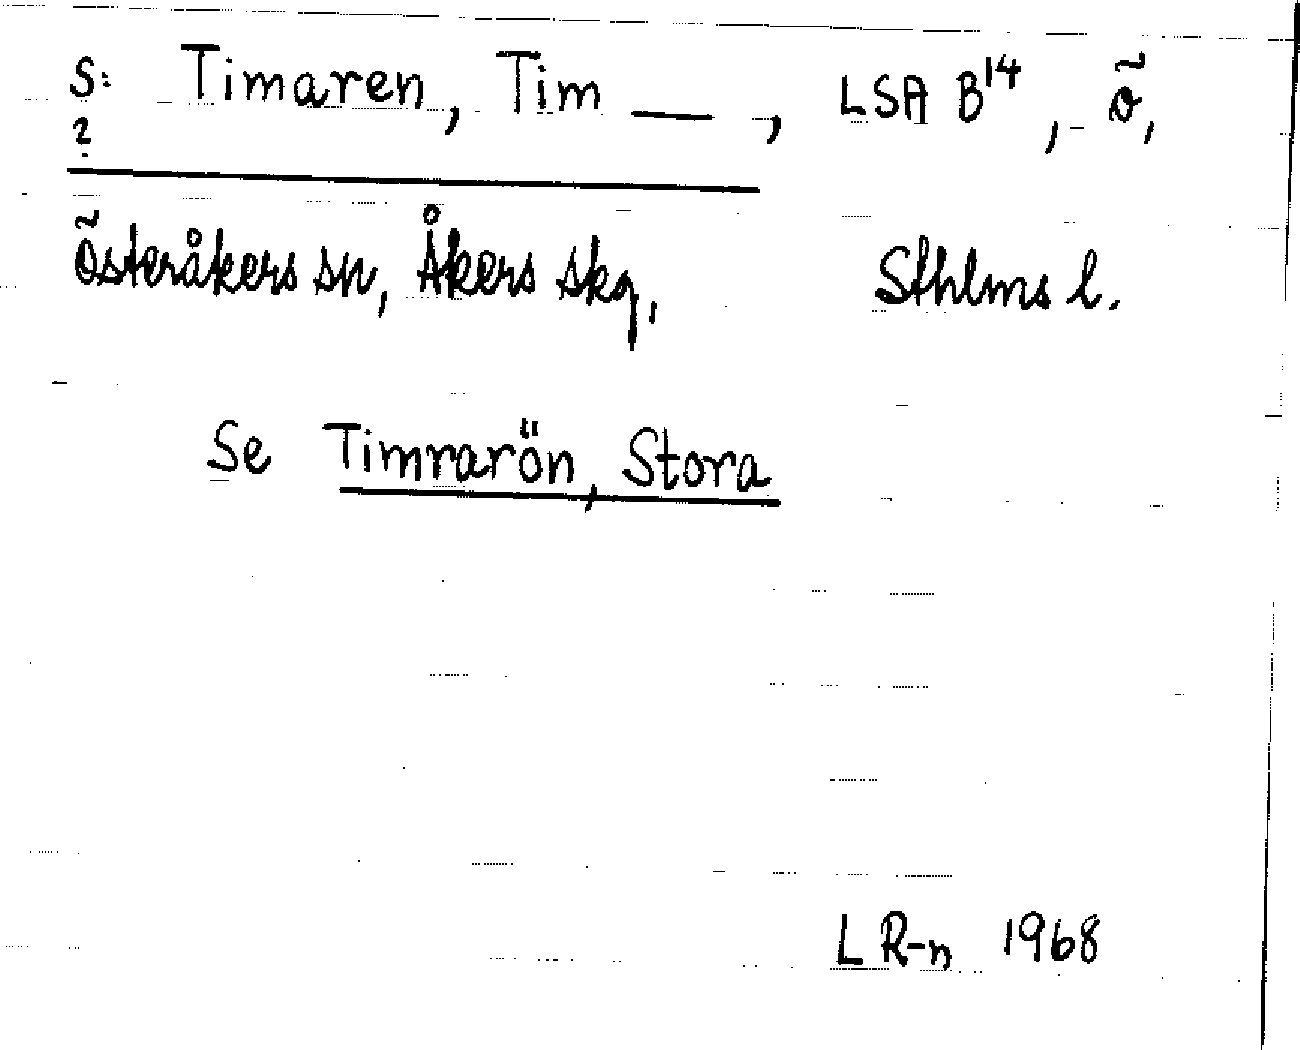 S: Timaren, Tim —, LSA B¹⁴, ö,
?
Österåkers sn, Åkers skg, Sthlms l.
Se Timrarön, Stora
L R-n 1968